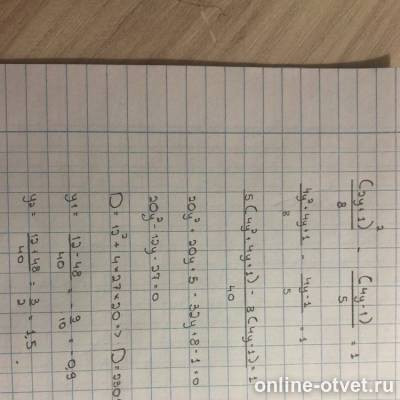 (2y+1)²/8 - (4y-1)/5 = 1
4y²+4y+1/8 - 4y-1/5 = 1
5(4y²+4y+1) - 8(4y-1)/40 = 1
20y²+20y+5-32y+8-1=0
20y²-12y-27=0
D = 12²+4×27×20 => D=230
y₁ = 12-48/40 = -9/10 = -0,9
y₂ = 12+48/40 = 3/2 = 1,5.
online-otvet.ru